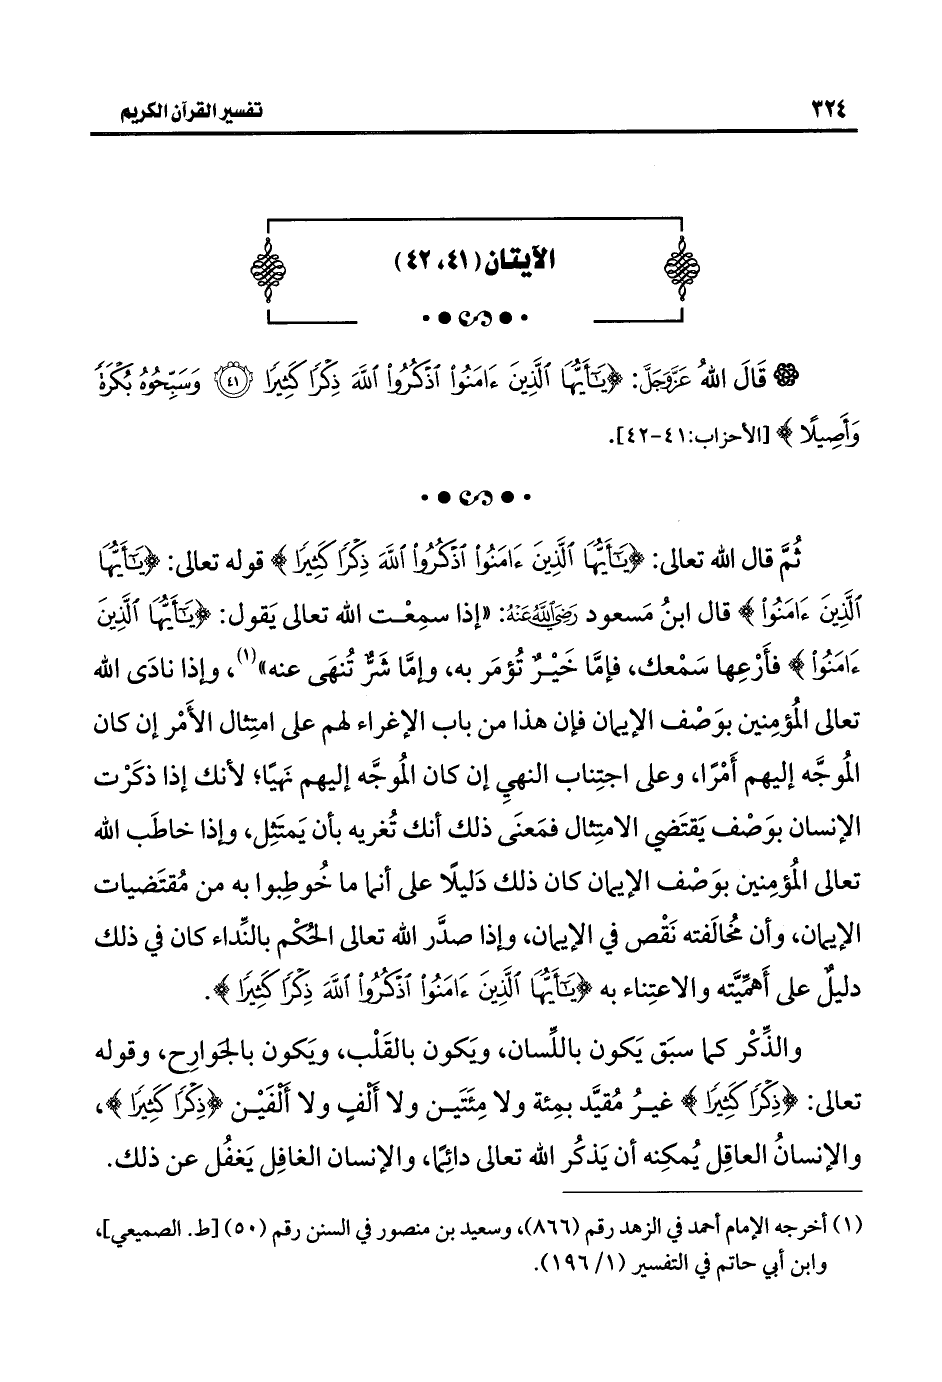 ٣٢٤
تفسير القرآن الكريم
الآيتان (٤١، ٤٢)
قَالَ اللهُ عَزَّوَجَلَّ: ﴿يَٰٓأَيُّهَا ٱلَّذِينَ ءَامَنُوا۟ ٱذْكُرُوا۟ ٱللَّهَ ذِكْرًا كَثِيرًا ٤١ وَسَبِّحُوهُ بُكْرَةً
وَأَصِيلًا﴾ [الأحزاب:٤١-٤٢].
ثُمَّ قال الله تعالى: ﴿يَٰٓأَيُّهَا ٱلَّذِينَ ءَامَنُوا۟ ٱذْكُرُوا۟ ٱللَّهَ ذِكْرًا كَثِيرًا﴾ قوله تعالى: ﴿يَٰٓأَيُّهَا
ٱلَّذِينَ ءَامَنُوا۟﴾ قال ابنُ مَسعود رَضِيَ اللَّهُ عَنْهُ: «إذا سمِعْت الله تعالى يَقول: ﴿يَٰٓأَيُّهَا ٱلَّذِينَ
ءَامَنُوا۟﴾ فأَرْعِها سَمْعك، فإمَّا خَيْرٌ تُؤمَر به، وإمَّا شَرٌّ تُنهَى عنه»(١)، وإذا نادَى الله
تعالى المُؤمِنين بوَصْف الإيمان فإن هذا من باب الإغراء لهم على امتِثال الأَمْر إن كان
المُوجَّه إليهم أَمْرًا، وعلى اجتِناب النهيِ إن كان المُوجَّه إليهم نَهيًا؛ لأنك إذا ذكَرْت
الإنسان بوَصْف يَقتَضي الامتِثال فمَعنَى ذلك أنك تُغريه بأن يَمتَثِل، وإذا خاطَب الله
تعالى المُؤمِنين بوَصْف الإيمان كان ذلك دَليلًا على أنما ما خُوطِبوا به من مُقتَضيات
الإيمان، وأن مُخالَفته نَقْص في الإيمان، وإذا صدَّر الله تعالى الحُكْم بالنِّداء كان في ذلك
دليلٌ على أَهمِّيَّته والاعتِناء به ﴿يَٰٓأَيُّهَا ٱلَّذِينَ ءَامَنُوا۟ ٱذْكُرُوا۟ ٱللَّهَ ذِكْرًا كَثِيرًا﴾.
والذِّكْر كما سبَق يَكون باللِّسان، ويَكون بالقَلْب، ويَكون بالجَوارِح، وقوله
تعالى: ﴿ذِكْرًا كَثِيرًا﴾ غيرُ مُقيَّد بمِئة ولا مِئَتَين ولا أَلْفٍ ولا أَلْفَيْن ﴿ذِكْرًا كَثِيرًا﴾،
والإنسانُ العاقِل يُمكِنه أن يَذكُر الله تعالى دائِمًا، والإنسان الغافِل يَغفُل عن ذلك.
(١) أخرجه الإمام أحمد في الزهد رقم (٨٦٦)، وسعيد بن منصور في السنن رقم (٥٠) [ط. الصميعي]،
وابن أبي حاتم في التفسير (١/ ١٩٦).